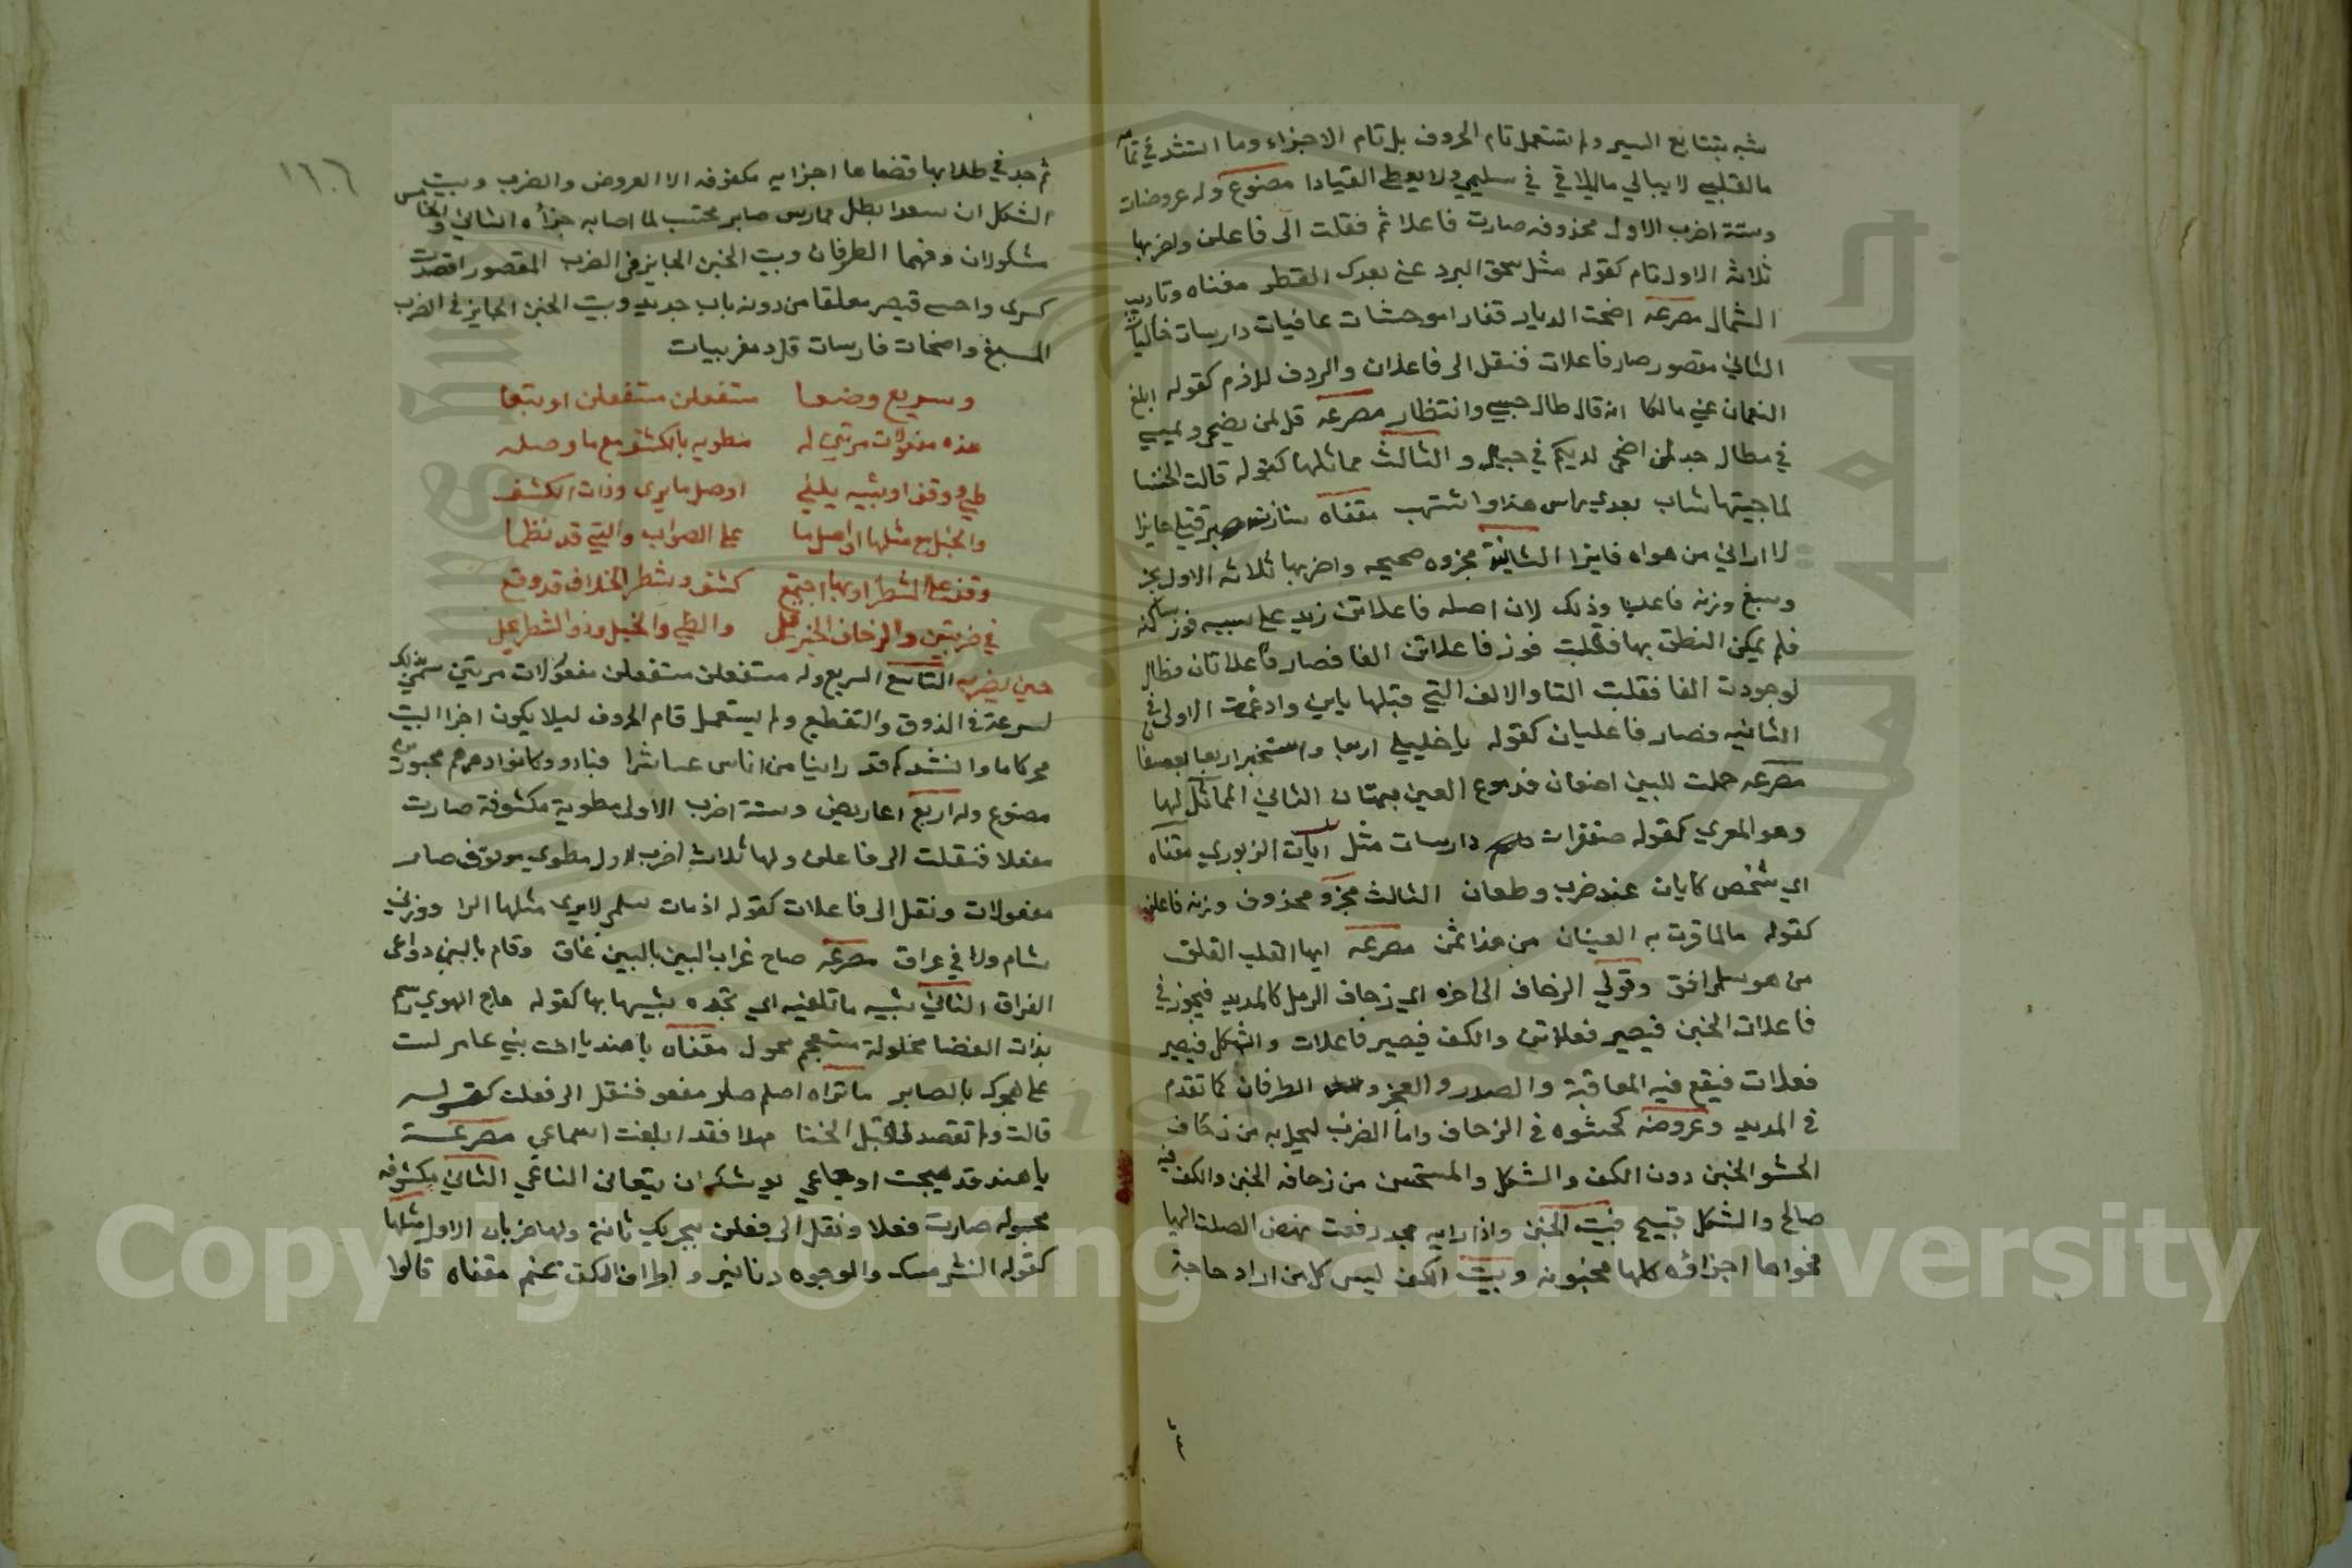 شبه بتتابع السير ولم تستعمل تام الحروف بل تام الاجزاء وما انشد في تمامه
مالقلبي لا يبالي ما يلاقي في سليمي ولا يعطي القيادا مصنوع وله عروضان
وستة اضرب الاول محذوفه صارت فاعلا ثم فنقلت الى فاعلن واضربها
ثلاثة الاول تام كقوله مثل سحق البرد عفى بعدك القطر مغناه وتاويب
الشمال مصرعه اضحت الديار قفارا موحشات عافيات دارسات خاليات
الثاني مقصور صار فاعلات فنقل الى فاعلان والردف لازم كقوله ابلغ
النعمان عني مالكا انه قال طال حبسي وانتظار مصرعه قل لمن يضحي ويمسي
في مطال جد لمن اضحى لديكم في حبال والثالث مماثلها كقوله قالت الخنسا
لما جيتها شاب بعدي راس هذا واشتهب مقفاه
لا اراني من هواه فايزا الثانية مجزوه صحيحه واضربها ثلاثة الاول مجز
وسبغ وزنه فاعليا وذلك لان اصله فاعلاتن زيد على سببه نون ساكنه
فلم يمكن النطق بها فقلبت نون فاعلاتن الفا فصار فاعلاتان
فقلبت التا والالف التي قبلها ياين وادغمت الاولى في
الثانيه فصار فاعليان كقوله يا خليلي اربعا واستخبرا ربعا بعسفا
مصرعه حملت للبين اضعان فدموع العين الثاني المماثل لها
وهو المعري كقوله مقفرات دارسات مثل ايات الزبور مقفاه
اي شخص كايان عند ضرب وطعان الثالث مجزو محذوف وزنه فاعلن
كقوله مالما قرت به العينان من هذا ثمن مصرعه ايها القلب القلق
من هو افق وقولي الزحاف الى اخره اي زحاف الرمل كالمديد فيجوز في
فاعلاتن الخبن فيصير فعلاتن والكف فيصير فاعلات والشكل فيصير
فعلات فيقع فيه المعاقبة والصدر والعجز والطرفان كما تقدم
في المديد وعروضه كحشوه في الزحاف واما الضرب فيحل به من زحاف
الحشو الخبن دون الكف والشكل والمستحسن من زحافه الخبن والكف فيه
صالح والشكل قبيح فبيت الخبن واذا رايه مجد رفعت نهض الصلت اليها
فحواها اجزاؤه كلها مخبونه وبيت الكف ليس كل من اراد حاجة
١٦٠٦
ثم جد في طلابها قضاها اجزايه مكفوفه الا العروض والضرب وبيت
الشكل ان سعدا بطل ممارس صابر محتسب لما اصابه جزاه الثاني والخامس
مشكولان وفيهما الطرفان وبيت الخبن الجايز في الضرب المقصور اقصدت
كسرى وامسى قيصر مغلقا من دونه باب حديد وبيت الخبن الجايز في الضرب
المسبغ واضحات فارسيات
وسريع وضعا مستفعلن مستفعلن اوتبعا
هذه مفعولات مرتين له مطويه بالكشف مع ما وصله
طي ووقف اوبشبيه يلفي اوصل ما يرى وذات الكشف
والخبل مع مثلها اواصل ما على الصواب والتي قد نظما
وقف على الشطر اوبها اجتمع كشف وشطر الخلاف قد وقع
في ضربتين والزحاف الخبن والطي والخبل وذو الشطر
حين يضربه التاسع السريع وله مستفعلن مستفعلن مفعولات مرتين سمي بذلك
لسرعته في الذوق والتقطيع ولم يستعمل تام الحروف ليلا يكون اخر البيت
محركا ما وانشد قد راينا من اناس
مصنوع وله اربع اعاريض وستة اضرب الاولى مطوية مكشوفة صارت
مفعلا فنقلت الى فاعلن ولها ثلاثة اضرب الاول مطوي موقوف صار
مفعولات ونقل الى فاعلات كقوله ازمان سلمى لا يرى مثلها الرا ؤون في
شام ولا في عراق مصرعه صاح غراب البين بالبين غاق وقام بالبين دواعى
الفراق الثاني شبيه ما تلفيه اي تجده شبيهابها كقوله هاج الهوى رسم
بذات الغضا مخلولق مستعجم محول مقفاه يا هند يا اخت بني عامر لست
على هجرك بالصابر ما تراه اصلم صار مفعو فنقل الى فعلن كقوله
قالت ولم تقصد لقيل الخنا مهلا فقد ابلغت اسماعي مصرعه
يا هند قد هيجت اوجاعي الناعي الثاني مكشوفه
مخبوله صارت فعلا ونقل الى فعلن بتحريك ثانيه ولها ضربان الاول مثلها
كقوله النشر مسك والوجوه دنانير واطراف الاكف عنم مقفاه قالوا